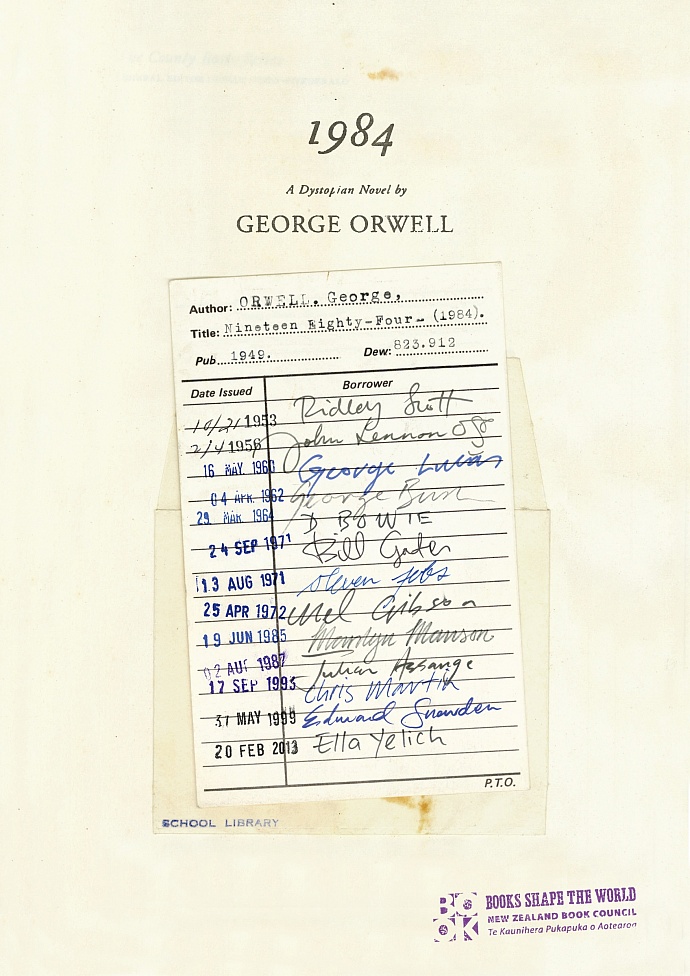 1984
A Dystopian Novel by
GEORGE ORWELL
Author: ORWELL. George,
Title: Nineteen Eighty-Four- (1984).
Pub. 1949. Dew: 823.912
Date Issued Borrower
10/21 1953 Ridley Scott
2/4 1956 John Lennon
16 MAY 1960 George Lucas
04 APR 1962 George Bush
29 MAR 1964 D BOWIE
24 SEP 1971 Bill Gates
13 AUG 1971 Steven Jobs
25 APR 1972 Mel Gibson
19 JUN 1985 Marilyn Manson
02 AUG 1987 Julian Assange
17 SEP 1993 Chris Martin
31 MAY 1999 Edward Snowden
20 FEB 2013 Ella Yelich
P.T.O.
SCHOOL LIBRARY
BOOK
BOOKS SHAPE THE WORLD
NEW ZEALAND BOOK COUNCIL
Te Kaunihera Pukapuka o Aotearoa